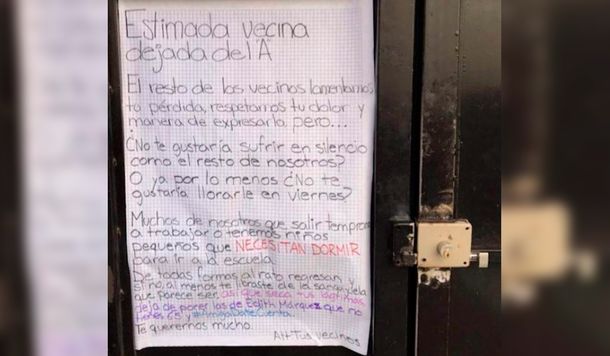 Estimada vecina
dejada del A
El resto de los vecinos lamentamos
tu pérdida, respetamos tu dolor y
manera de expresarla, pero...
¿No te gustaría sufrir en silencio
como el resto de nosotros?
O ya por lo menos ¿No te
gustaría llorarle en viernes?
Muchos de nosotros que salir temprano
a trabajar o tenemos niños
pequeños que NECESITAN DORMIR
para ir a la escuela.
De todas formas al rato regresan y
si no, al menos te libraste de la
que parece ser, así que seca tus lagrimas
deja de poner las de Edith Márquez que no
tienes 65 y #AmigaDateCuenta.
Te queremos mucho.
Att Tus vecinos